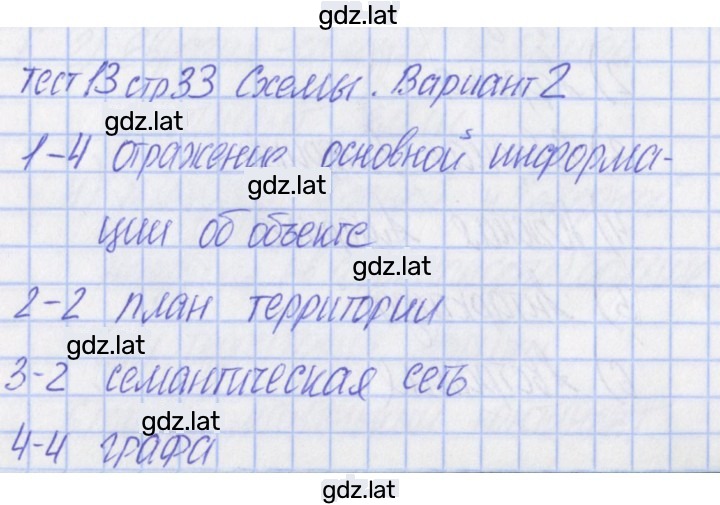 gdz.lat
Тест 13 стр 33 Схемы. Вариант 2
gdz.lat
1-4 отражение основной информа-
gdz.lat
ции об объекте
gdz.lat
2-2 план территории
gdz.lat
3-2 семантическая сеть
gdz.lat
4-4 графа
gdz.lat